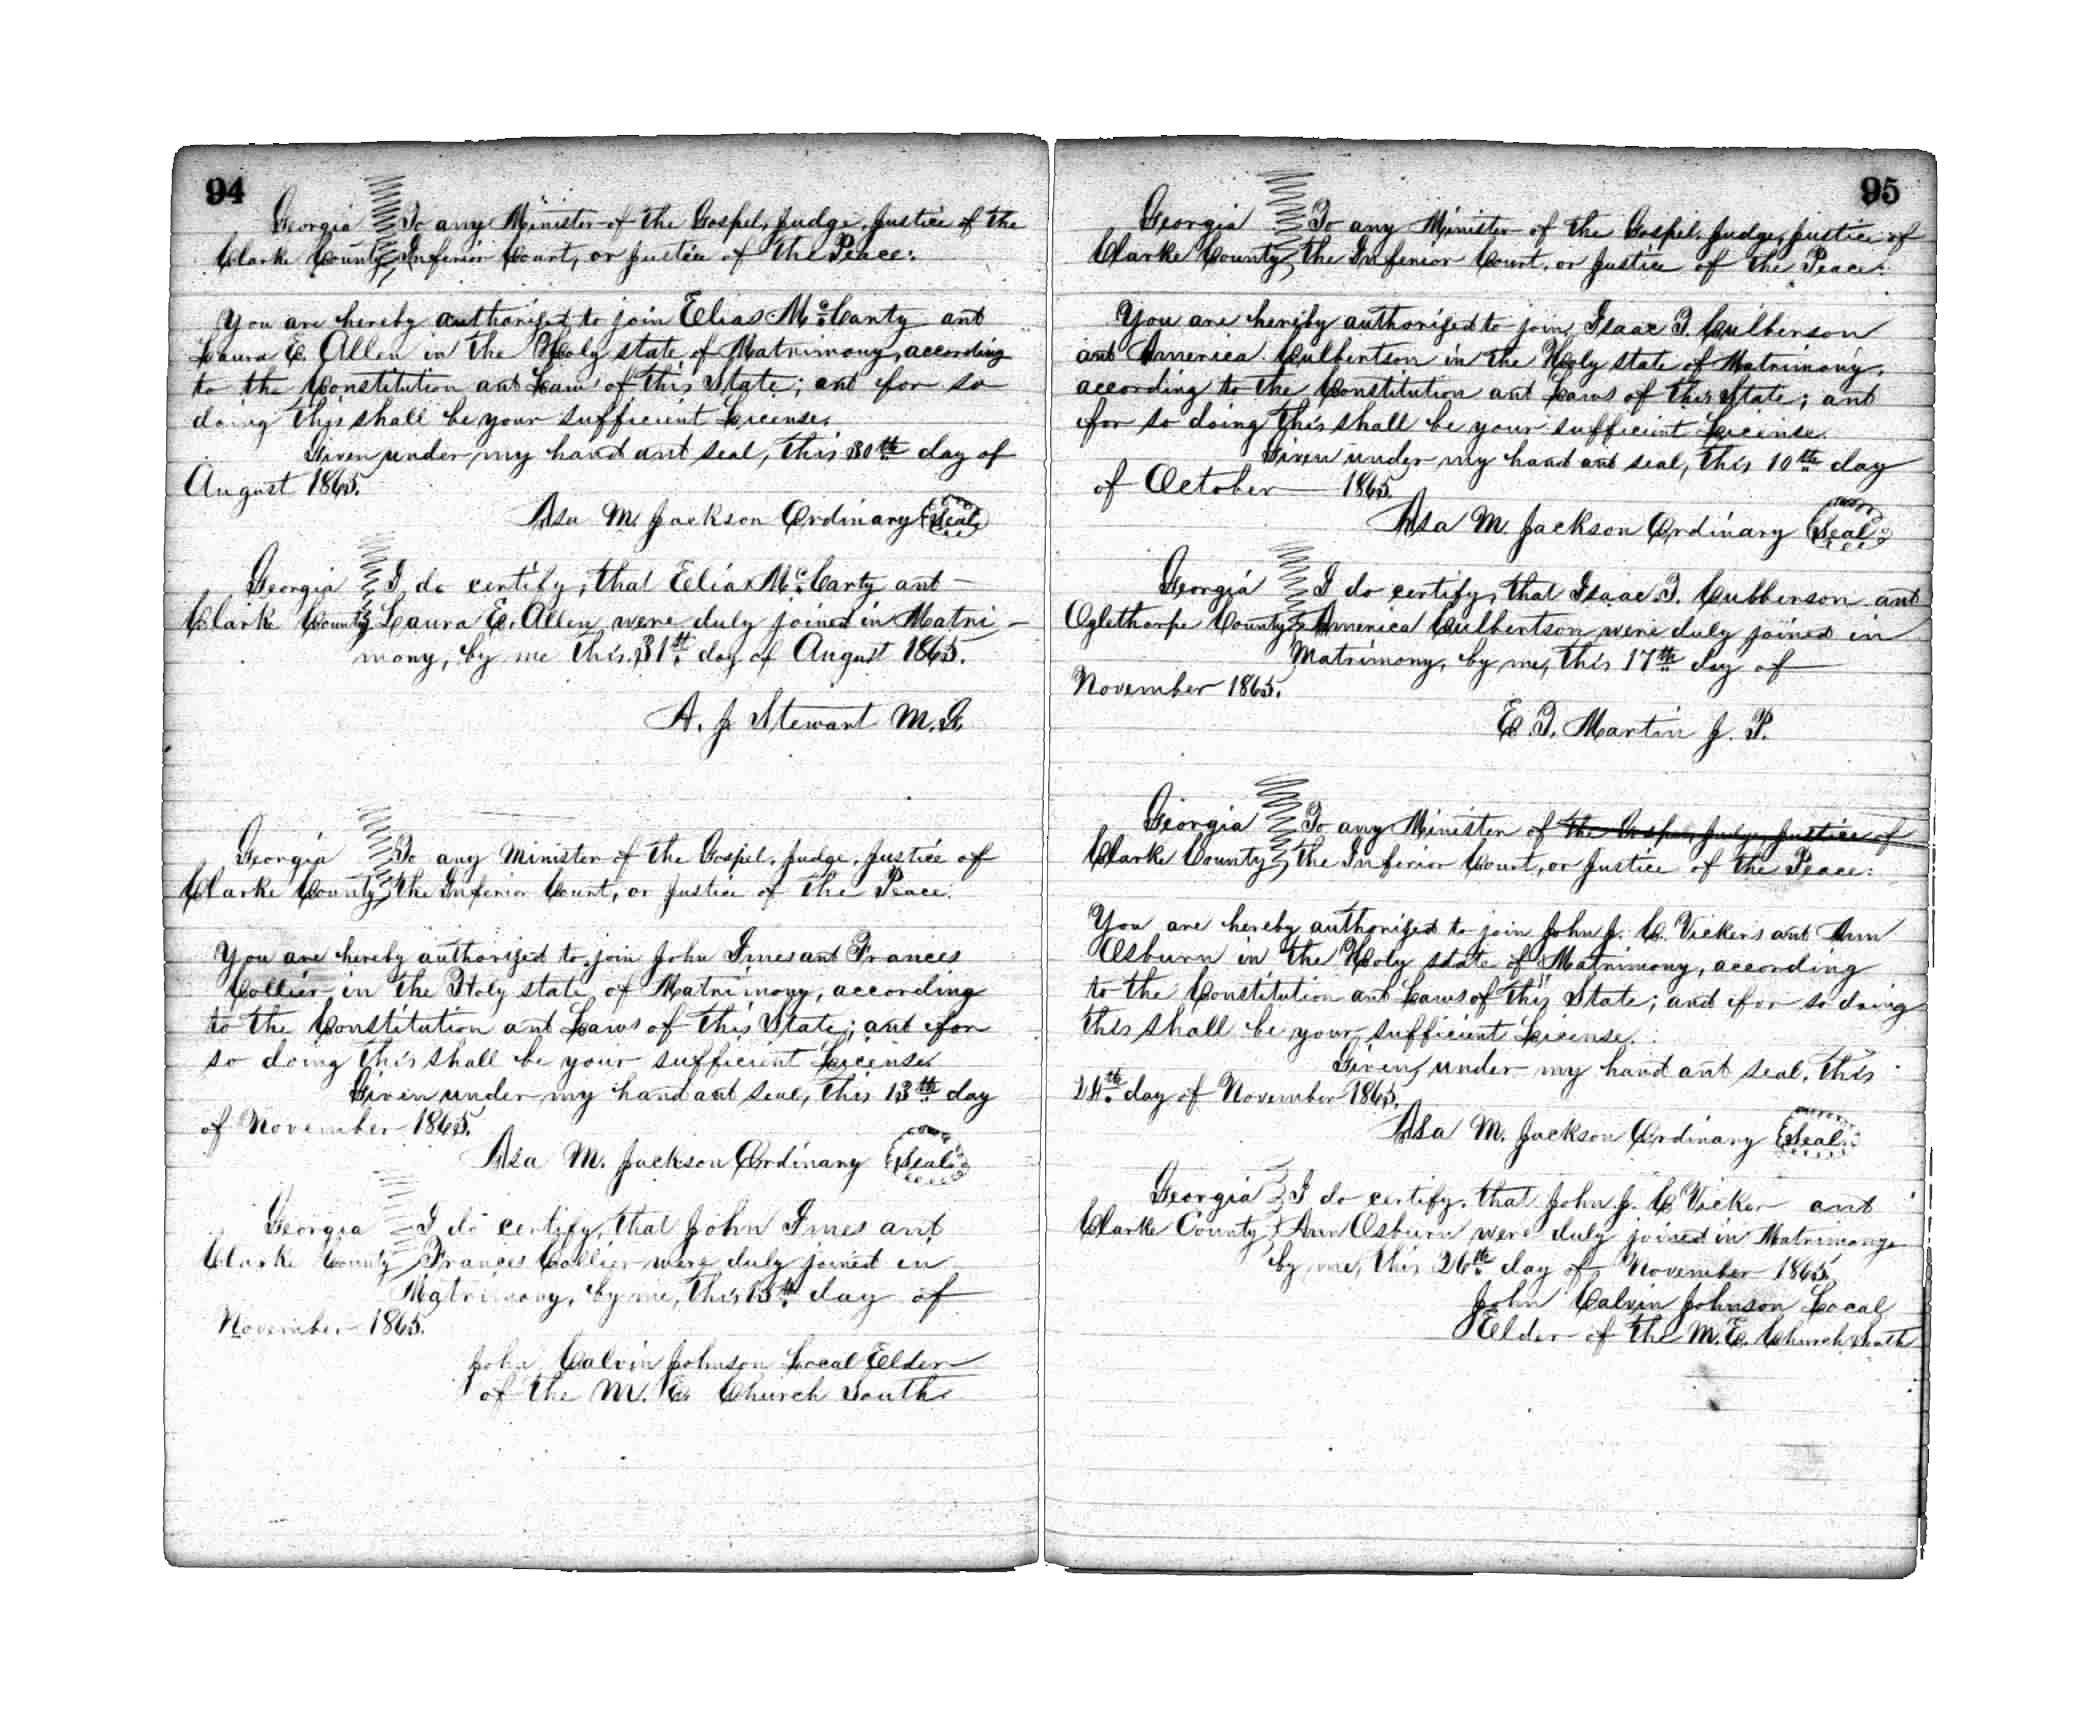 94
Georgia To any Minister of the Gospel, Judge, Justice of the
Clarke County Inferior Court, or Justice of the Peace:
You are hereby authorized to join Elias McCarty and
Laura E. Allen in the Holy state of Matrimony, according
to the Constitution and Laws of this State; and for so
doing this shall be your sufficient License.
Given under my hand and seal, this 30th day of
August 1865.
Asa M. Jackson Ordinary Seal
Georgia I do certify, that Elias McCarty and
Clark County Laura E. Allen were duly joined in Matri-
mony, by me this 31st day of August 1865.
A. J Stewart M.G.
Georgia To any Minister of the Gospel, Judge, Justice of
Clarke County the Inferior Court, or Justice of the Peace.
You are hereby authorized to join John Imes and Frances
Collier in the Holy state of Matrimony, according
to the Constitution and Laws of this State; and for
so doing this shall be your sufficient License.
Given under my hand and seal, this 13th day
of November 1865.
Asa M. Jackson Ordinary Seal
Georgia I do certify, that John Imes and
Clarke County Frances Collier were duly joined in
Matrimony, by me, this 13th day of
November 1865.
John Calvin Johnson Local Elder
of the M. E. Church South
95
Georgia To any Minister of the Gospel, Judge, Justice of
Clarke County the Inferior Court, or Justice of the Peace:
You are hereby authorized to join Isaac T. Culberson
and America Culbertson in the Holy state of Matrimony,
according to the Constitution and Laws of this State; and
for so doing this shall be your sufficient License.
Given under my hand and seal, this 10th day
of October 1865.
Asa M. Jackson Ordinary Seal
Georgia I do certify, that Isaac T. Culberson and
Oglethorpe County America Culbertson were duly joined in
Matrimony, by me, this 17th day of
November 1865.
E. T. Martin J. P.
Georgia To any Minister of the Gospel, Judge, Justice of
Clarke County the Inferior Court, or Justice of the Peace:
You are hereby authorized to join John J. C. Vickers and Ann
Osburn in the Holy state of Matrimony, according
to the Constitution and Laws of this State; and for so doing
this shall be your sufficient License.
Given under my hand and seal, this
24th day of November 1865.
Asa M. Jackson Ordinary Seal
Georgia I do certify, that John J. C Vicker and
Clarke County Ann Osburn were duly joined in Matrimony
by me, this 26th day of November 1865,
John Calvin Johnson Local
Elder of the M. E. Church South